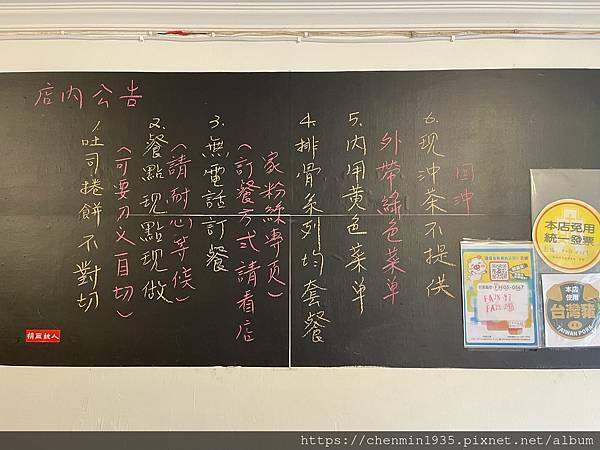 店內公告
1.吐司捲餅不對切
(可要刀叉自切)
2.餐點現點現做
(請耐心等候)
3.無電話訂餐
(訂餐方式請看店
家粉絲專頁)
4.排骨系列均套餐
5.內用黃色菜單
外帶綠色菜單
6.現沖茶不提供
回沖
本店免用
統一發票
本店
使用
台灣豬
TAIWAN PORK
https://chenmin1935.pixnet.net/album